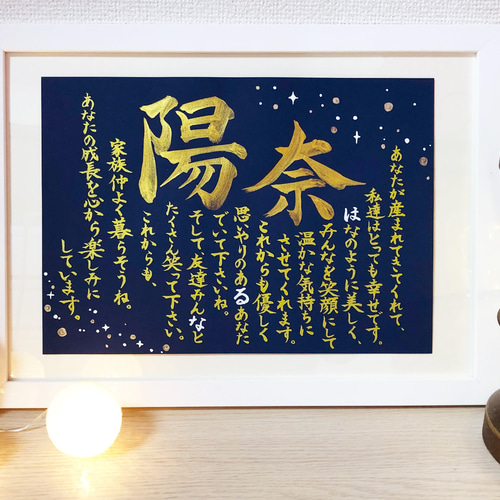 陽奈
あなたが産まれてきてくれて、
私達はとっても幸せです。
はなのように美しく、
みんなを笑顔にして
温かな気持ちに
させてくれます。
これからも優しく
思いやりのあるあなた
でいて下さいね。
そして友達みんなと
たくさん笑って下さい。
これからも、
家族仲よく暮らそうね。
あなたの成長を心から楽しみに
しています。